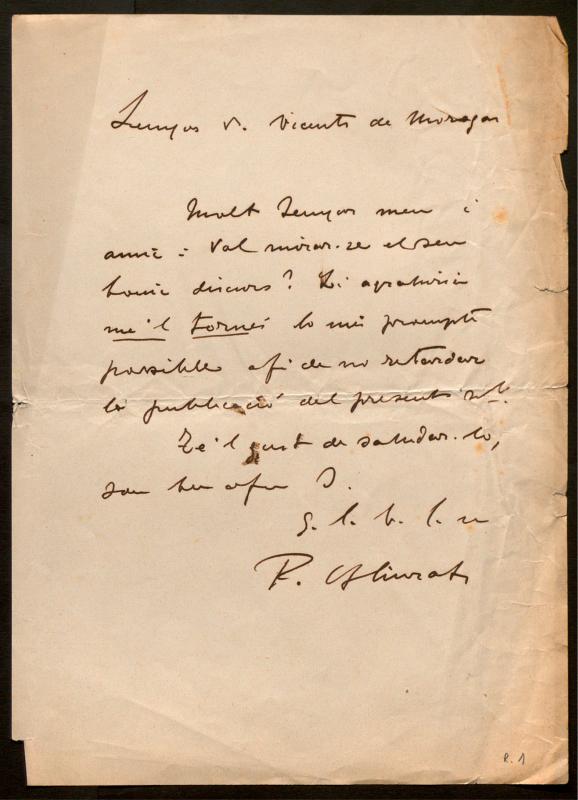 Senyor D. Vicents de Moragas
Molt Senyor meu i
amic: Val mirar-se el seu
bonic discurs? Li agrahiria
me'l tornés lo més prompte
possible a fi de no retardar
la publicació del present
Té'l gust de saludar-lo,
son bon afm S.
q. l. b. l. m
R.
R. 1